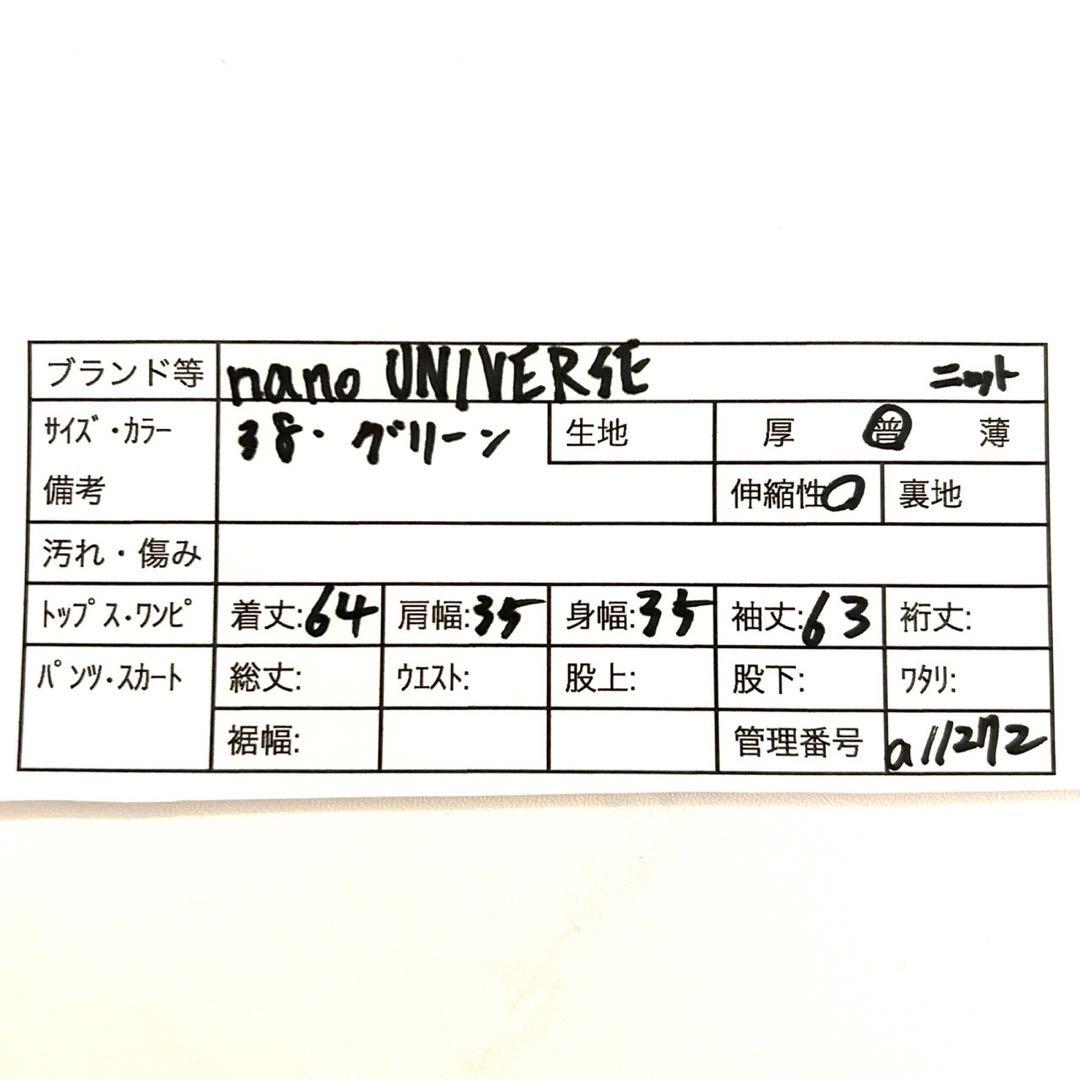 ブランド等 nano UNIVERSE ニット
サイズ・カラー 38・グリーン 生地 厚 普 薄
備考 伸縮性○ 裏地
汚れ・傷み
トップス・ワンピ 着丈:64 肩幅:35 身幅:35 袖丈:63 裄丈:
パンツ・スカート 総丈: ウエスト: 股上: 股下: ワタリ:
裾幅: 管理番号 a11272